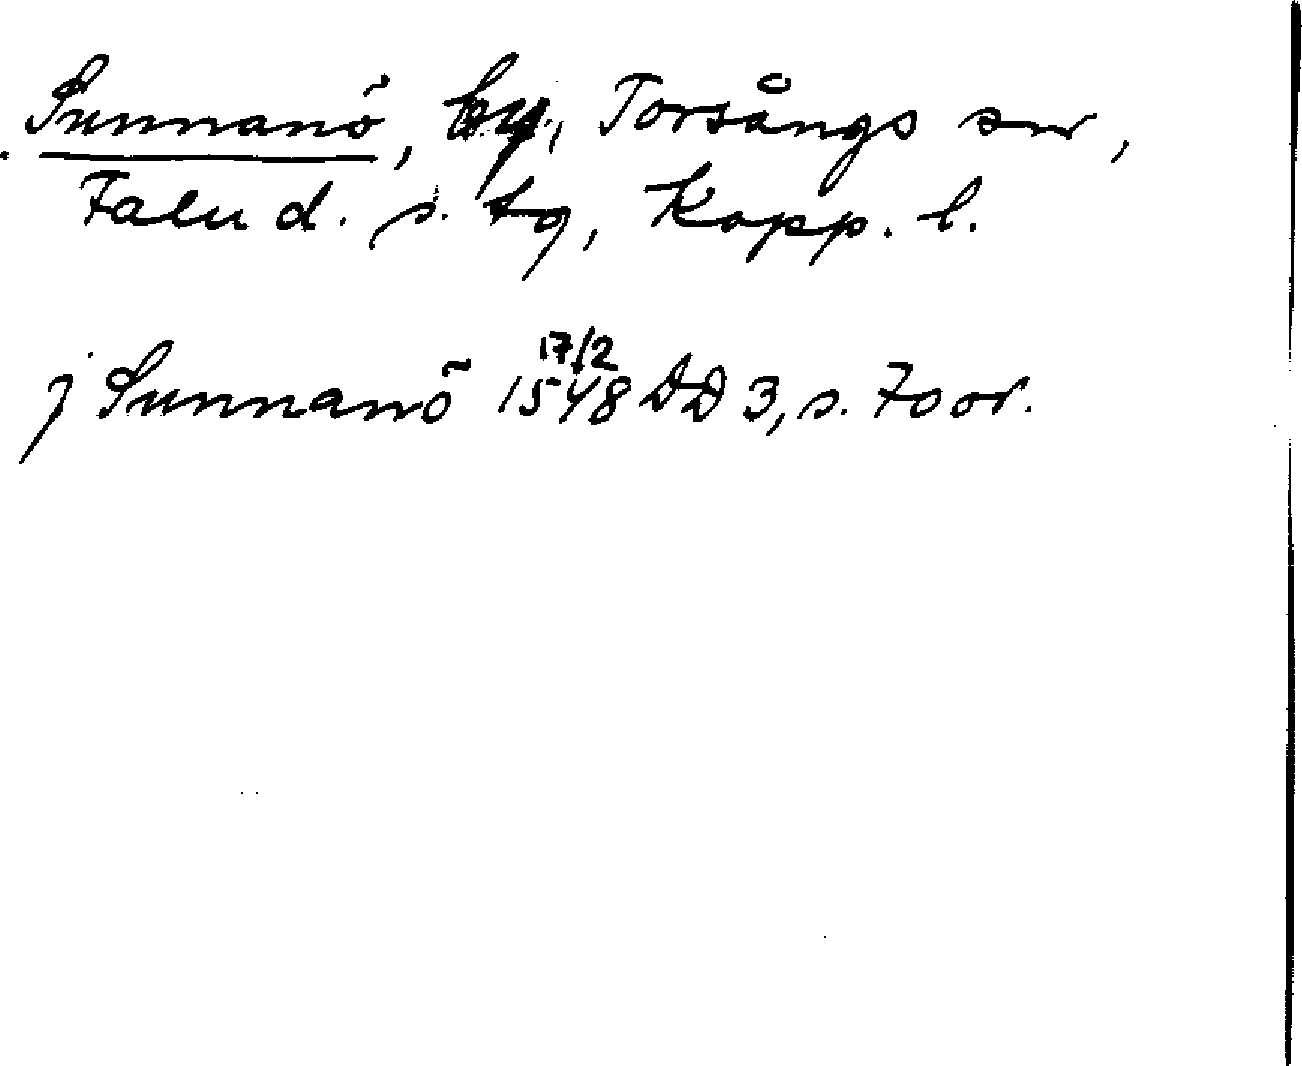 Sunnanö, by, Torsångs sn,
Falu d. s. tg, Kopp. l.
j Sunnanö 17/2 1548 DD 3, s. 70 or.